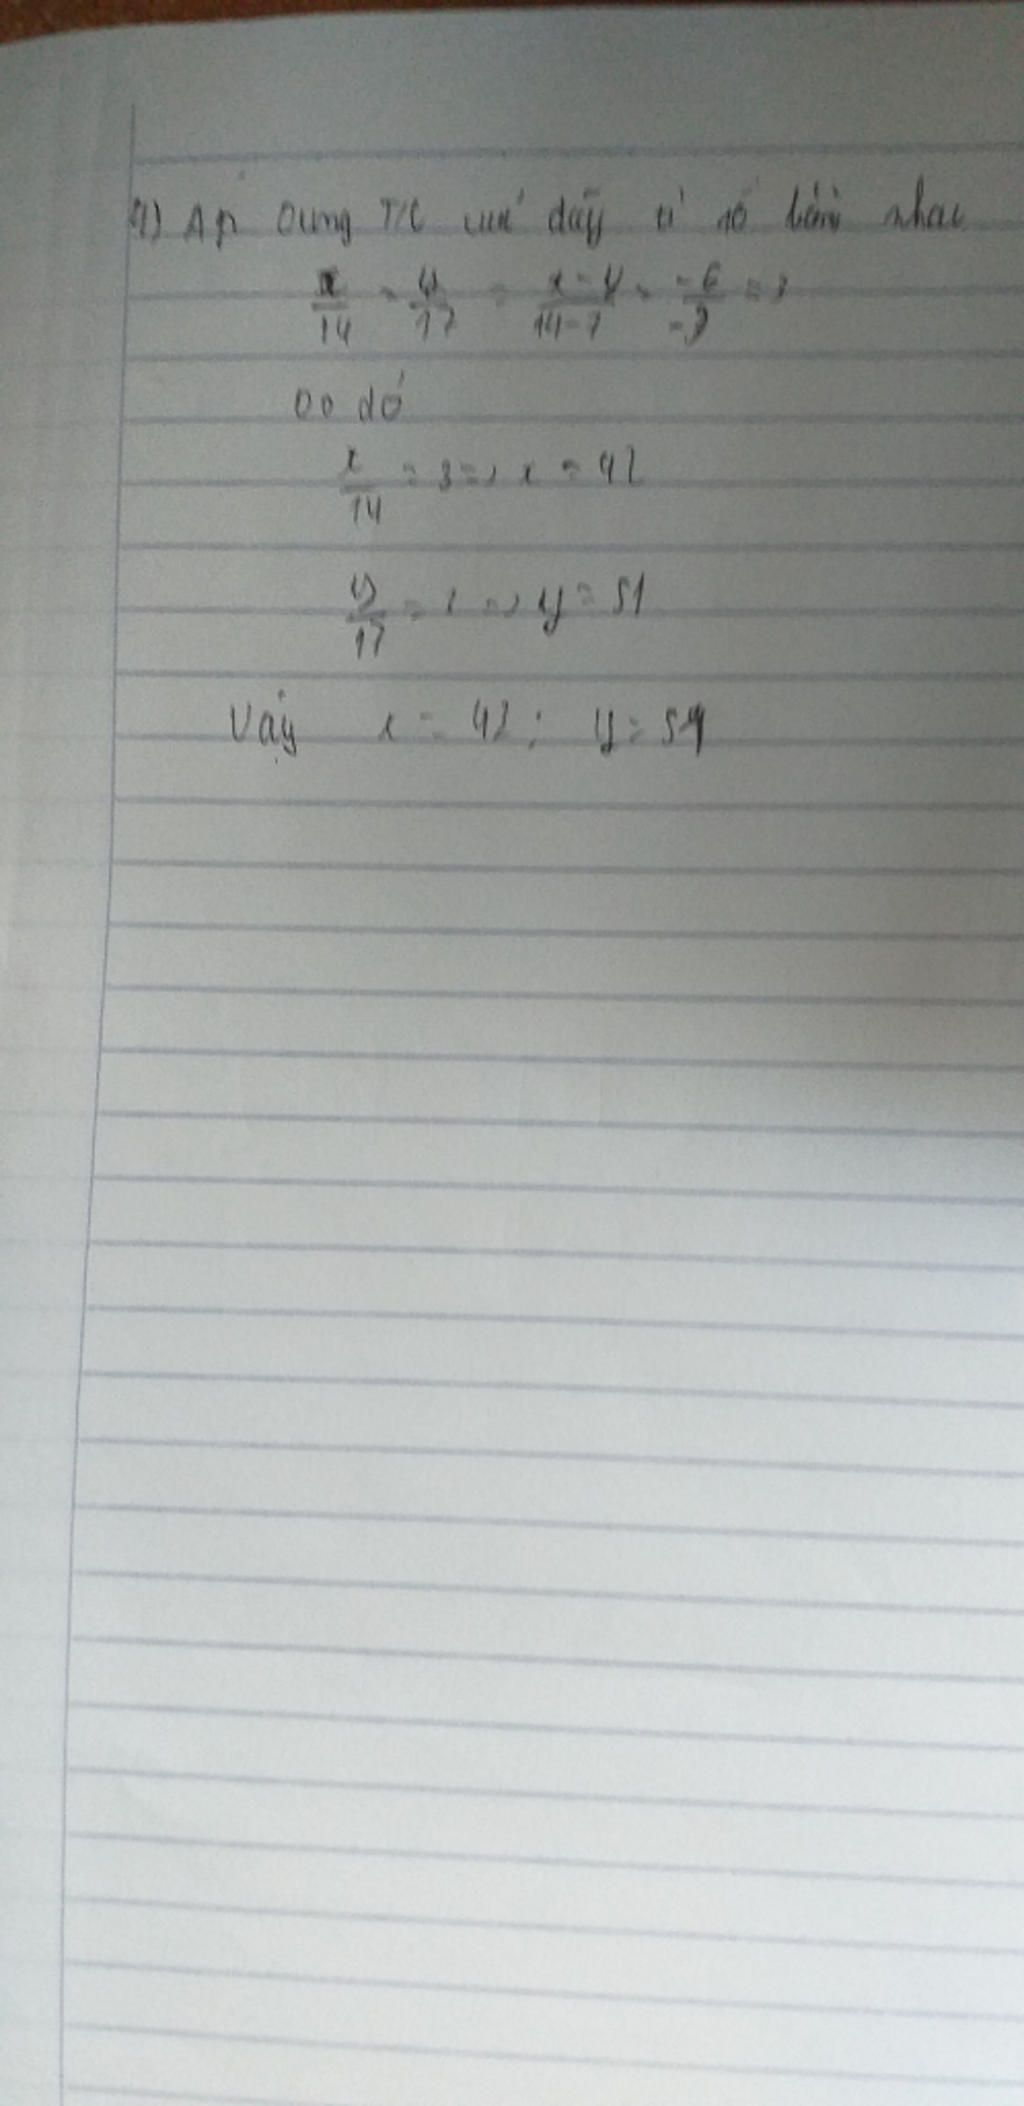 1) Áp dụng T/C của dãy tỉ số bằng nhau
x/14 = y/17 = x-y/14-7 = -6/-3 = 3
Do đó
x/14 = 3 => x = 42
y/17 = 3 => y = 51
Vậy x = 42 ; y = 51